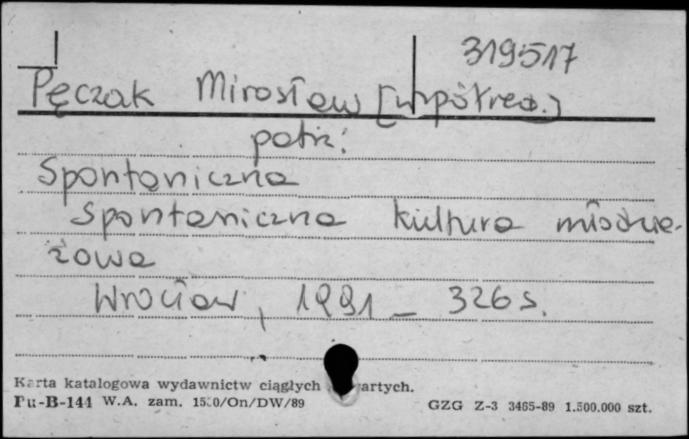 319517
Pęczak Mirosław [współred.]
patrz:
Spontaniczna
Spontaniczna kultura młodzie-
żowa
Wrocław, 1991 — 326 s.
Karta katalogowa wydawnictw ciągłych
Pu-B-144 W.A. zam. /On/DW/89 GZG Z-3 3465-89 1.500.000 szt.